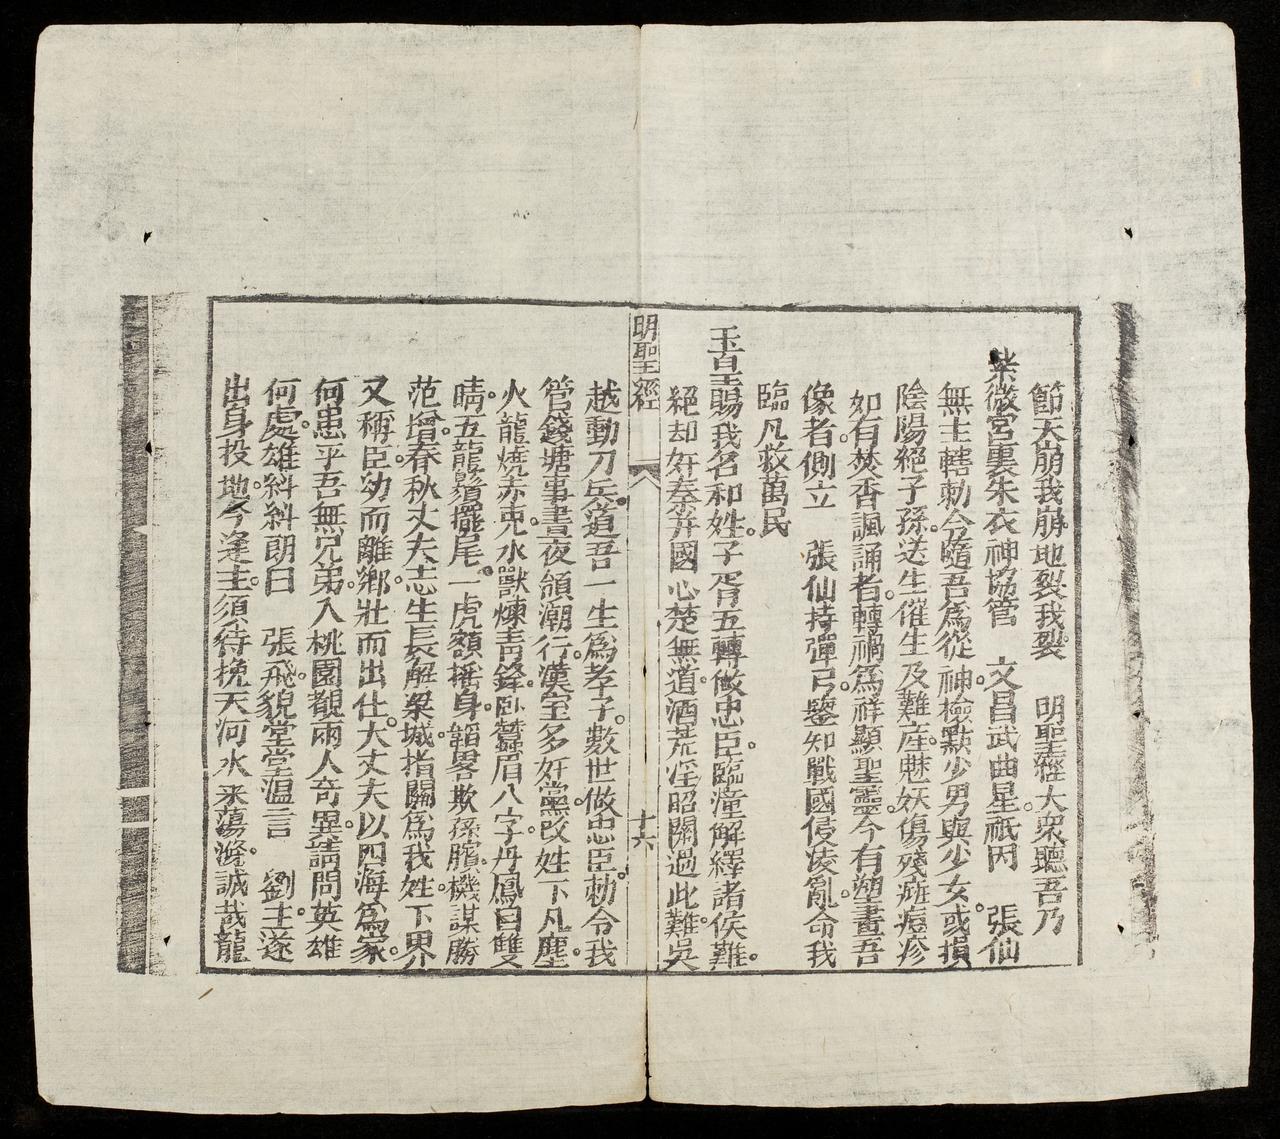 節天崩我崩。地裂我裂。　明聖經大衆聽吾乃
紫微宮裏朱衣神協管　文昌武曲星。祇因　張仙
無主轄勅令隨吾為從神。檢點少男與少女。或損
陰陽絕子孫。送生催生及難産。魅妖傷殘痘疹
如有焚香諷誦者。轉禍為祥顯聖靈。今有塑畫吾
像者。側立　張仙持彈弓。鑒知戰國侵凌亂。命我
臨凡救萬民
玉皇賜我名和姓。子胥五轉做忠臣。臨潼解繹諸侯難。
絕却奸秦并國心。楚無道。酒荒淫昭關過此難。吳
明聖經
十六
越動刀兵。道吾一生為孝子。數世做忠臣。勅令我
管錢塘事。晝夜領潮行。漢室多奸黨。改姓下凡塵。
火龍燒赤。水獸煉青鋒。臥蠶眉八字。丹鳳目雙
睛。五龍鬚擺尾。一虎額摇身。韜畧欺孫臏。機謀勝
范增。春秋丈夫志。生長解梁城。指關為我姓。下界
又稱臣。幼而離鄉。壯而出仕。大丈夫以四海為家。
何患乎吾無兄弟。入桃園觀兩人奇異。請問英雄
何處。雄糾糾朗曰　張飛。貌堂堂溫言　劉主。遂
出身投地。今逢主。須待挽天河水来蕩滌。誠哉龍